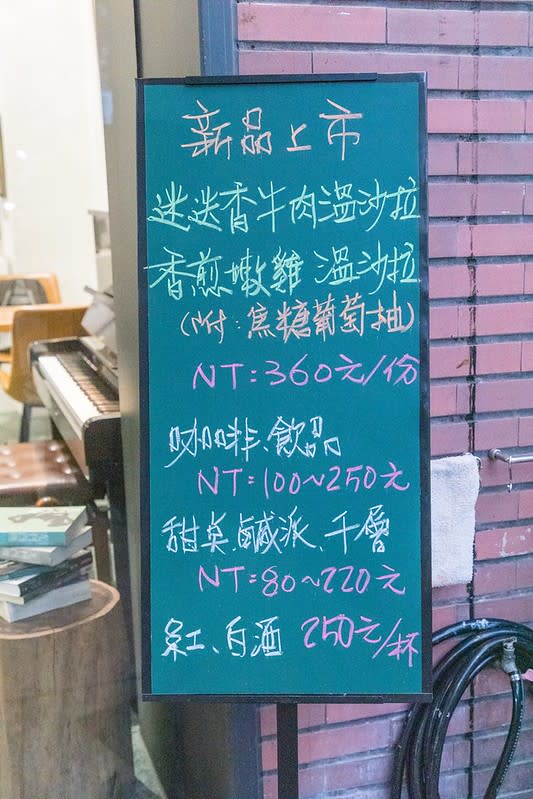 新品上市
迷迭香牛肉溫沙拉
香煎嫩雞溫沙拉
(附:焦糖葡萄抽)
NT:360元/份
咖啡、飲品
NT:100~250元
甜美、鹹派、千層
NT:80~220元
紅、白酒 250元/杯